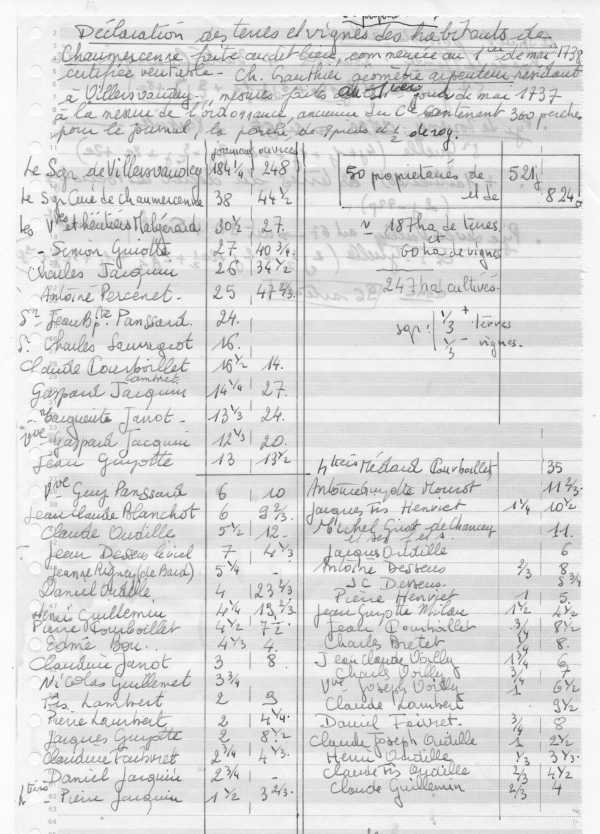 Déclaration des terres et vignes des habitants de
Chaumercenne faite audit lieu, commencée au 1er de mai 1738
certifiée véritable - Ch. Gauthier géomètre arpenteur résidant
à Villersvaudey, mesures faits au jours de mai 1737
à la mesure de l'ordonnance, ancienne du Cté contenant 360 perches
pour le journal, la perche de 9 pieds ½ de roy.
journaux ouvrées
Le Sgr de Villersvaudey 184 ¼ 248
Le Sgr Curé de Chaumercenne 38 44 ½
les Ves et héritiers Malgérard 30 ½ 27.
- Simon Guiotte 27 40 ¾
Charles Jacquin 26 34 ½
Antoine Percenet. 25 47 ⅔
Sr Jean Bpte Panssard. 24.
Sr Charles Sauvageot 16.
Claude Courboillet 16 ½ 14.
Gaspard Jacquin 14 ¼ 27.
Marguerite Janot - 13 ⅓ 24.
Vve Gaspard Jacquin 12 ⅓ 20.
Jean Guyotte 13 13 ½
50 propriétaires de 521 j
et de 824 o
~ 187 ha de terres
et
60 ha de vignes
247 ha cultivés.
sgr : ⅓ + terres
⅓ - vignes.
Vve Guy Panssard 6 10
Jean Claude Blanchot 6 9 ⅔
Claude Oudille 5 ½ 12.
Jean Dessus le viel 7 4 ⅓
Jeanne Rigney (de Bard) 5 ¼ -
Daniel Oudille 4 23 ⅔
Guillemin 4 ¼ 15 ⅔
Pierre Courboillet 4 ½ 7 ½
Edme Bou.. 4 ⅓ 4.
Claudine Janot 3 8
Nicolas Guillemet 3 ¾
Frs. Lambert 2 9
Pierre Lambert 2 4 ¼
Jacques Guyotte 2 8 ½
Claudine Faivret 2 ¼ 4 ⅓
- Daniel Jacquin 2 ¾ -
htiers - Pierre Jacquin 1 ½ 3 ⅔
htiers Médard Courboillet 35
Antoine Guyotte Mourot 11 ⅔
Jacques Frs Henriet 1 ¼ 10 ½
Michel Girot de Chancey 11.
Jacques Oudille 6
Antoine Dessus ⅔ 8
JC Dessus. 8 ¾
Pierre Henriet 1 5.
Jean Guyotte Milan 1 ½ 4 ½
Jean Courboillet ¾ 8 ½
Charles Bretet 8.
Jean Claude Voilly 1 ¼ 6
Charles Voilly ¾ 7
Vve Joseph Voilly 1 6 ½
Claude Lambert 9 ½
Daniel Faivret. ¾ 8
Claude Joseph Oudille 1 2 ½
Henri Oudille ⅓ 3 ⅓
Claude Frs Oudille ⅔ 4 ½
Claude Guillemin ⅔ 4